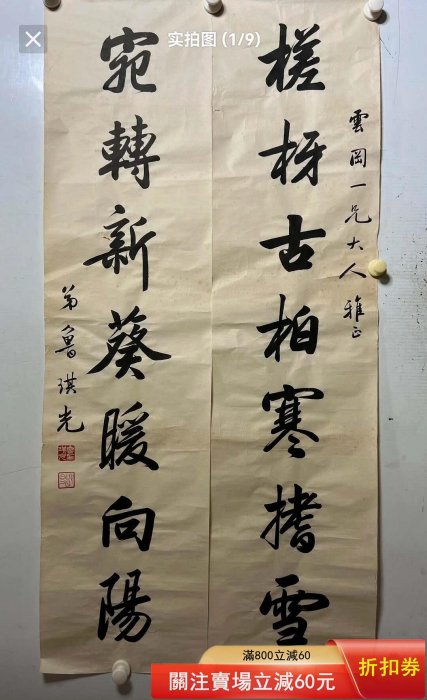 实拍图 (1/9)
雲岡一兄大人雅正
槎枒古柏寒撐雪
宛轉新葵暖向陽
弟魯琪光
滿800立減60
關注賣場立減60元
折扣券